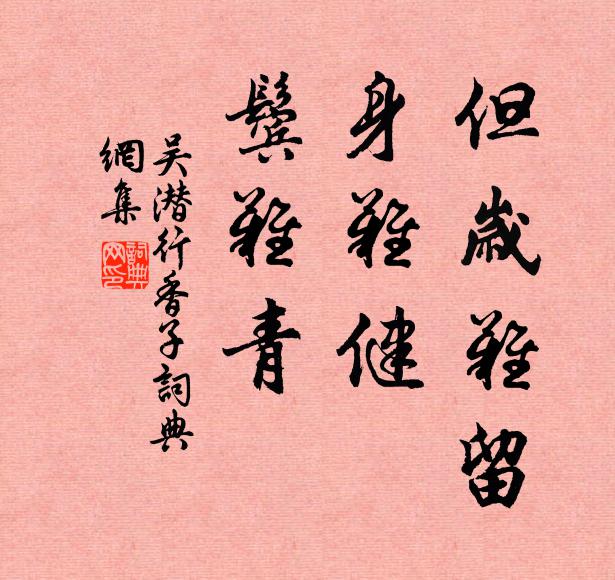 但歲難留
身難健
鬓難青
吴潜行香子詞典
網集
詞典
网印